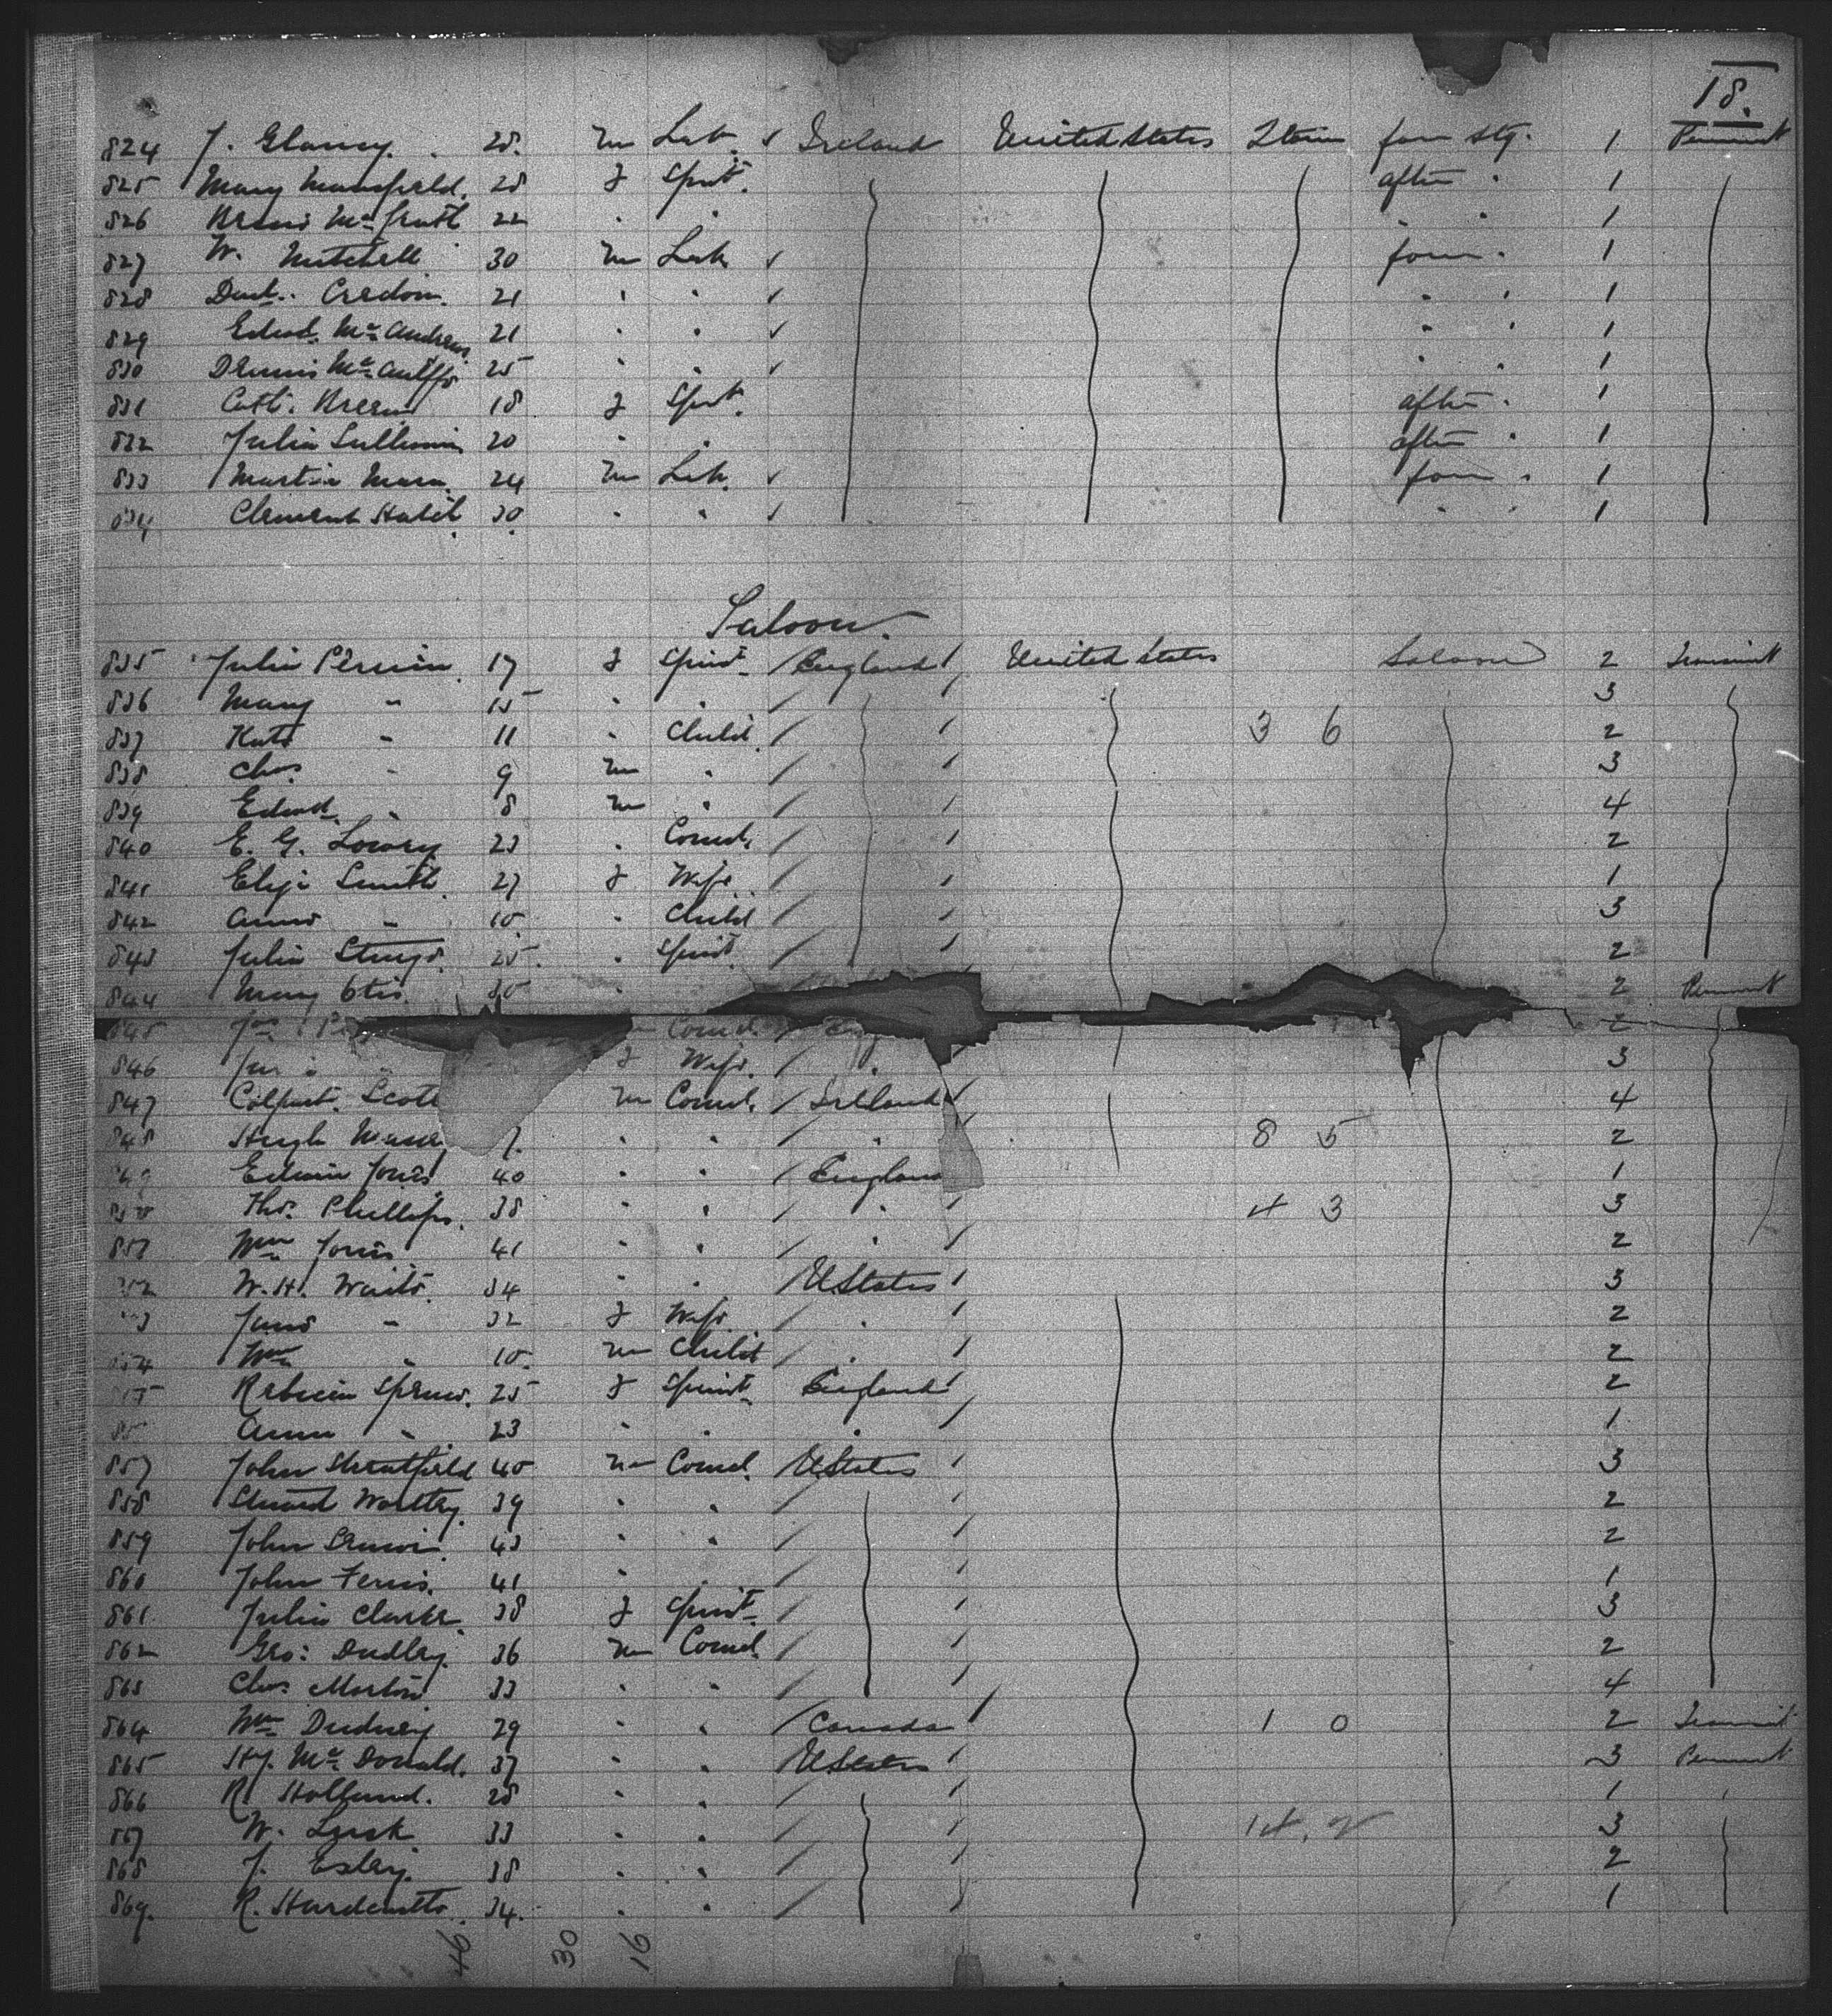 18.
824 J. Glancy. 28. m Lab. ✓ Ireland United States Steer forw stg. 1 Permnt
825 Mary Mansfield. 28 f Spist. after " 1
826 McGrath 22 " " " " 1
827 W. Mitchell 30 m Lab. ✓ forw " 1
828 Danl. Credon. 21 " " ✓ " " 1
829 Edwd. McAndrew 21 " " ✓ " " 1
830 Dennis McAuliffe 25 " " ✓ " " 1
831 Cath. Breen 18 f Spst. after " 1
832 Julia Sullivan 20 " " after " 1
833 Martin Mara. 24 m Lab. ✓ forw " 1
834 Clement 30 " " ✓ " " 1
Saloon.
835 Julia 17 f Spinst / England / United States Saloon 2 Transient
836 Mary " 15 " " / / 3
837 Kate " 11 " Child / / 3 6 2
838 Chas. " 9 m " / / 3
839 Edwd. " 8 m " / / 4
840 E. G. Lowry 23 " Comcl. / / 2
841 Eliza Smith 27 f Wife / / 1
842 Annie " 10 " Child / / 3
843 Julia 25 " Spinst / / 2
844 Mary Otis 30 " 2 Permnt
845 Comcl. / 2
846 " f Wife. / " 3
847 Scott m Comcl. / Ireland / 4
848 Hugh 7. " " / " 8 5 2
849 Edwin Jones 40 " " / England 1
850 Thos. Phillips. 38 " " / " / 4 3 3
851 Wm Jones 41 " " / " / 2
852 W. H. Waite. 34 " " / U States / 3
853 Jane " 32 f Wife / " / 2
854 Wm " 10 m Child / " / 2
855 Rebecca 25 f Spinst England / 2
85 Anna " 23 " " " / 1
857 John Stratfield 40 m Comcl. / U States / 3
858 Edward Wortley 39 " " / / 2
859 John 43 " " / / 2
860 John Ferris. 41 " " / / 1
861 Julia Clarke 38 f Spinst / / 3
862 Geo: Dudley 36 m Comcl. / / 2
863 Chas. Morton 33 " " / / 4
864 Wm Dudney 29 " " / Canada / 1 0 2 Transnt
865 Hy. McDonald. 37 " " U States / 3 Permnt
866 R. Holland. 28 " " / / 1 "
867 W. Lusk 33 " " / / 14. 2 3
868 J. Exley 38 " " / / 2
869. R. Hardcastle. 34. " " / / 1
46 30 16